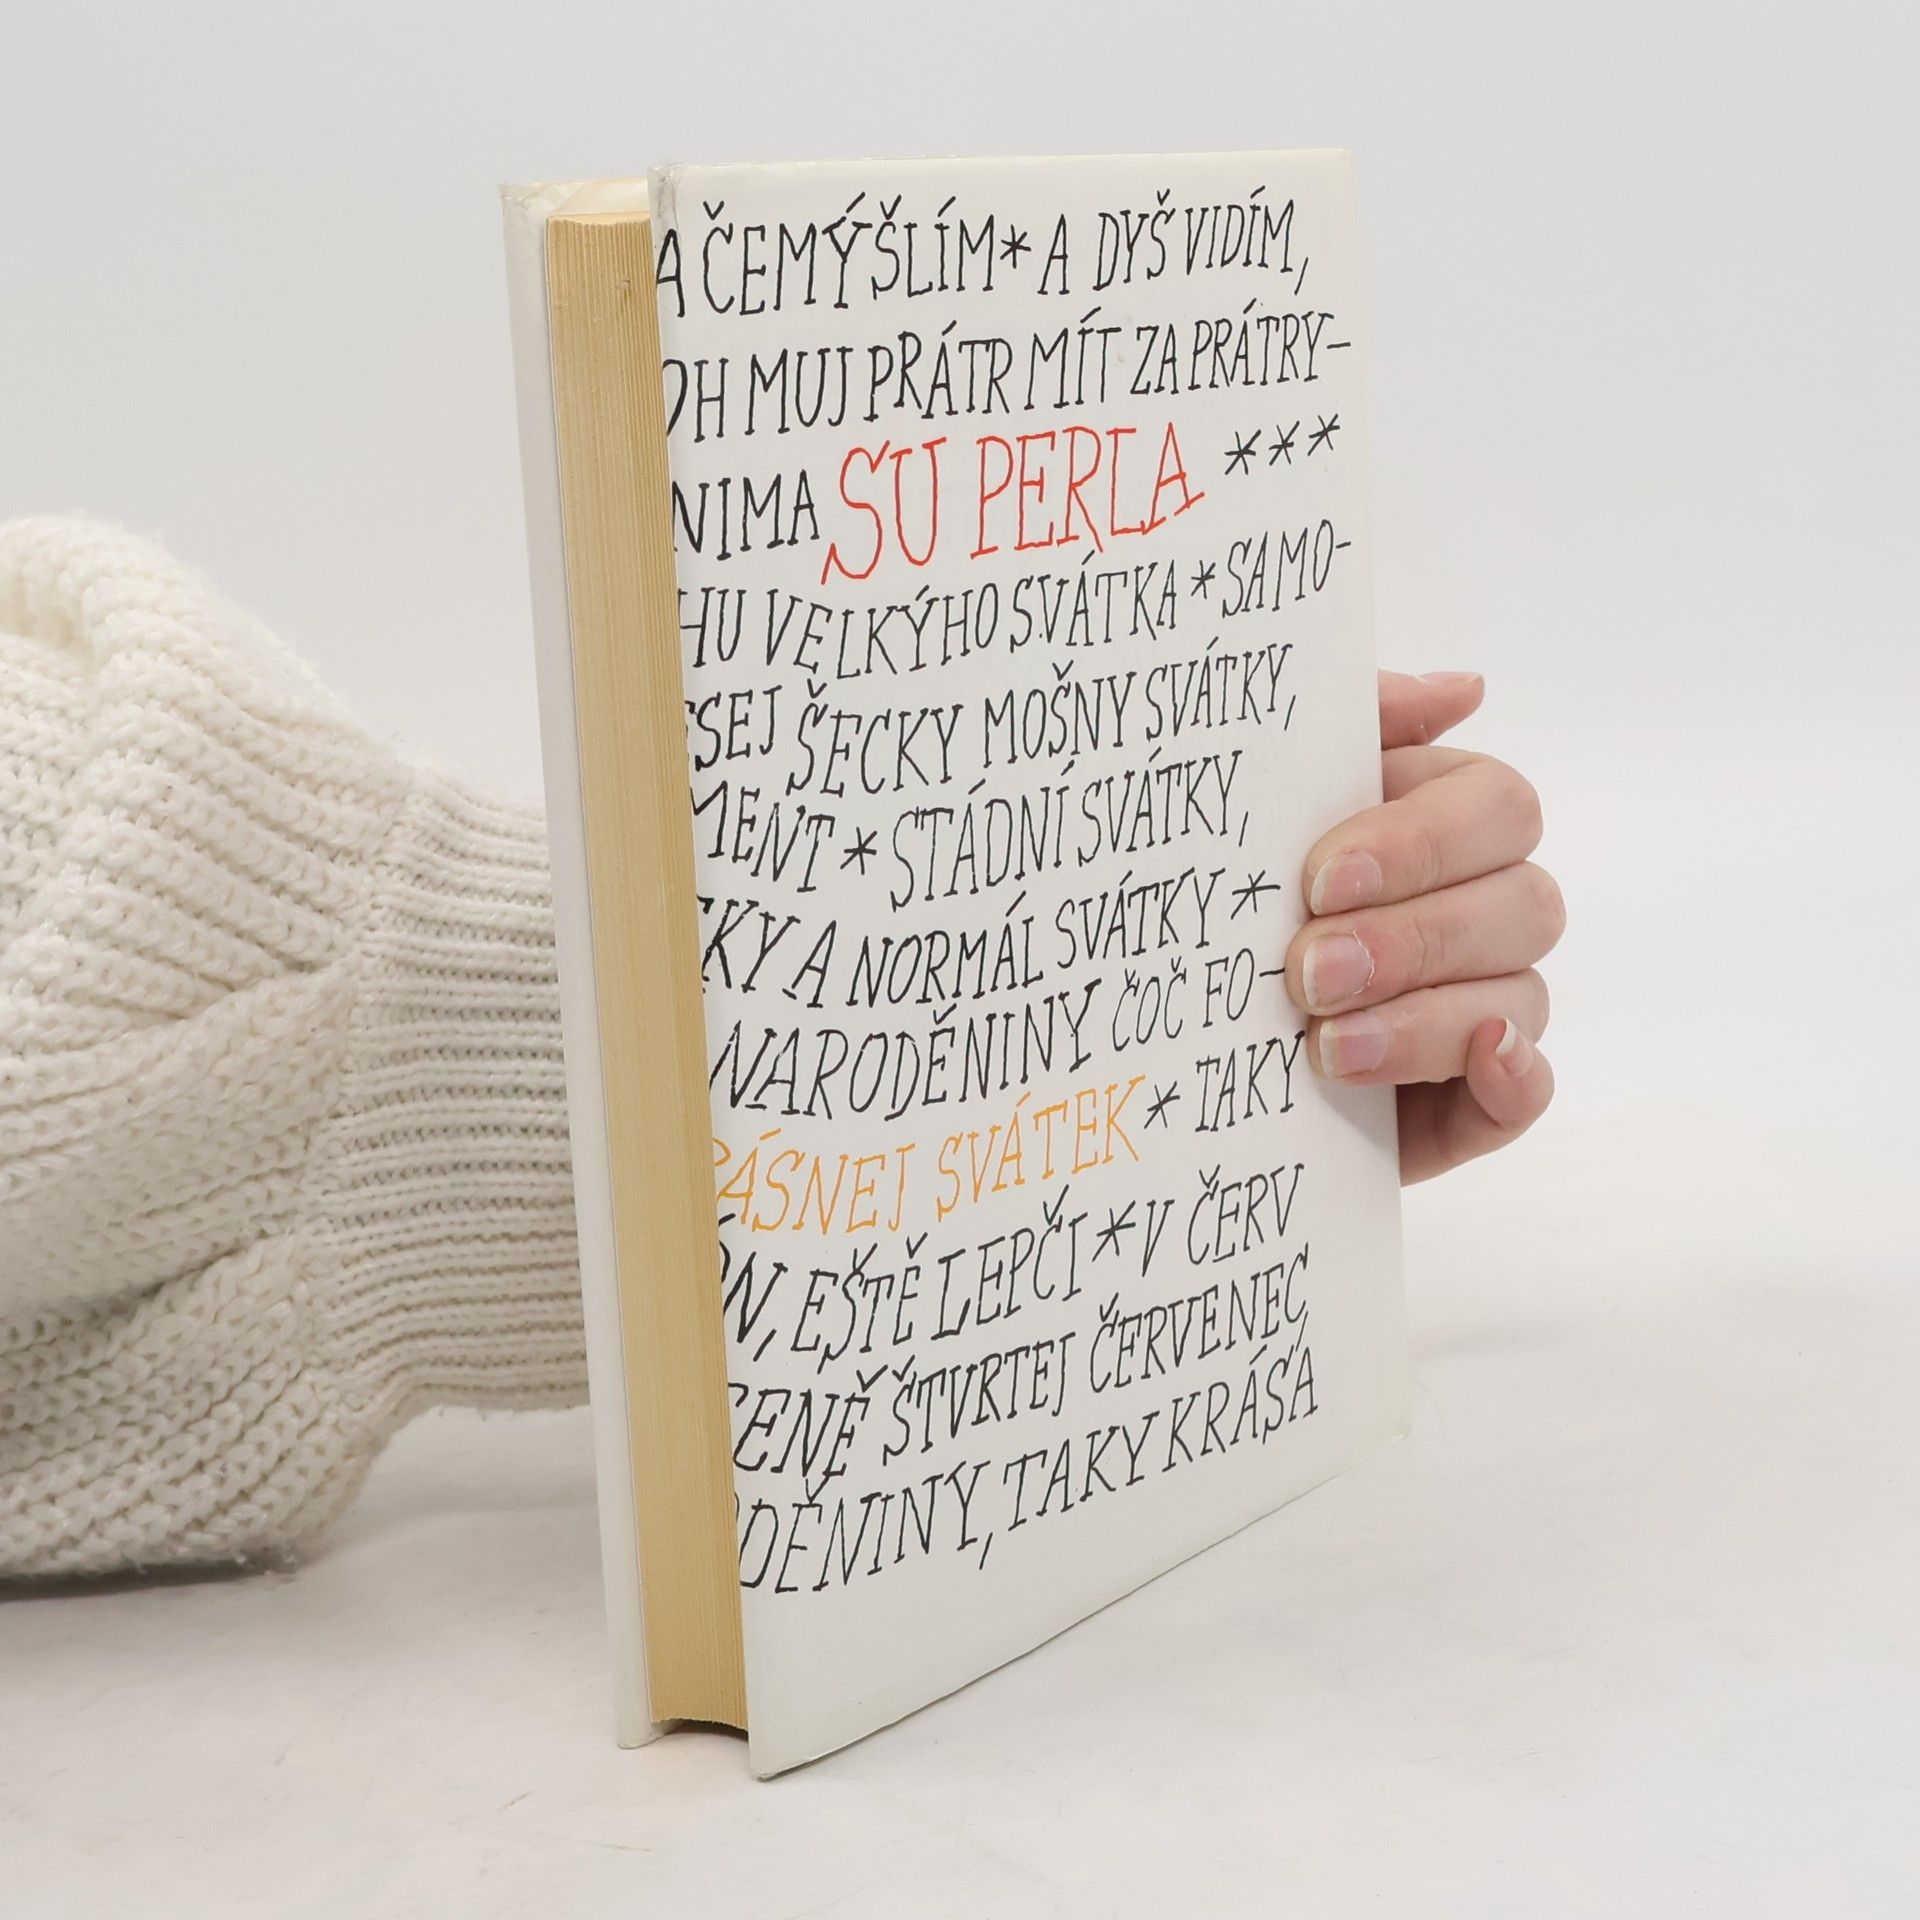 A ČEMÝŠLÍM * A DYŠ VIDÍM,
OH MUJ PRÁTR MÍT ZA PRÁTRY-
NIMA SU PERLA ***
HU VELKÝHO SVÁTKA * SAMO-
SEJ ŠECKY MOŠNY SVÁTKY,
MENT * STÁDNÍ SVÁTKY,
KY A NORMÁL SVÁTKY *
NARODĚNINY ČOČ FO-
ÁSNEJ SVÁTEK * TAKY
N, EŠTĚ LEPČI * V ČERV
ENĚ ŠTVRTEJ ČERVENEC,
DĚNINY, TAKY KRÁSA